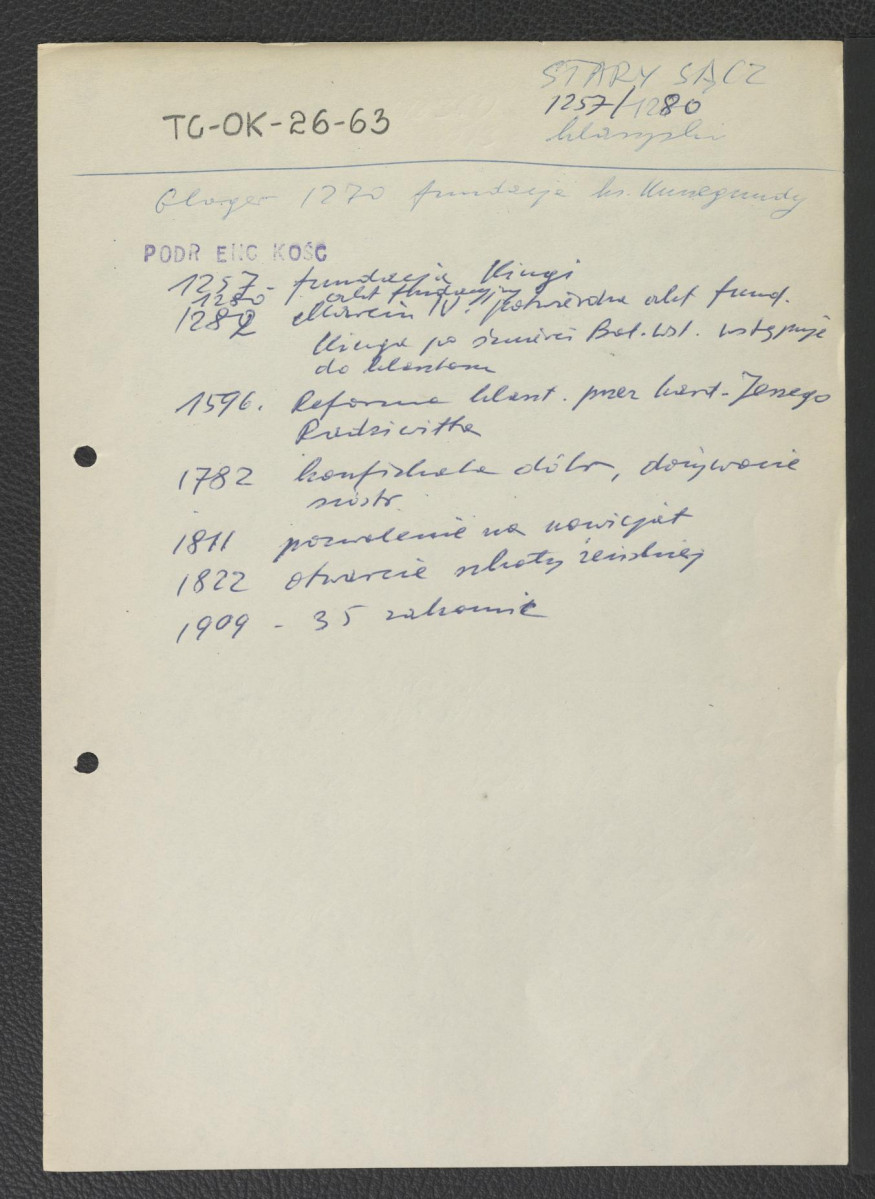 STARY SĄCZ
1257/1280
klaryski
TG-OK-26-63
Gloger 1270 fundacja ks. Kunegundy
PODR ENC KOŚC
1257- fundacja Kingi
1280 akt fundacyjny
1282 Marcin IV. potwierdza akt fund.
Kinga po śmierci Bol. Wst. wstępuje
do klasztoru
1596. Reforma klaszt. przez kard. Jerzego
Radziwiłła
1782 konfiskata dóbr, dożywocie
sióstr.
1811 pozwolenie na nowicjat
1822 otwarcie szkoły żeńskiej
1909 - 35 zakonnic